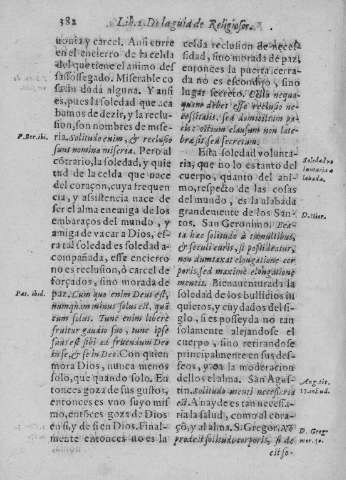 382 Lib.1. De la guia de Religiosos.
uonia y carcel. Ansi corre
en el encierro de la celda
del que tiene el animo des
sassossegado. Miserable co
sa sin duda alguna. Y ansi
es, pues la soledad que aca
bamos de dezir, y la reclu-
sion, son nombres de mise-
P. Ber. ibi.
ria. Solitudo enim, & reclusio
sunt nomina miseria. Pero al
cōtrario, la soledad, y quie
tud de la celda que nace
del coraçon, cuya frequen
cia, y assistencia nace de
ser el alma enemiga de los
embaraços del mundo, y
amiga de vacar a Dios, es-
ta tal soledad es soledad a-
compañada, esse encierro
no es reclusion, ò carcel de
forçados, sino morada de
Pat. ibid.
paz. Cum quo enim Deus est,
nunquam minus solus est, quã
cum solus. Tunc enim liberè
fruitur gaudio suo, tunc ipse
suus est sibi ad fruendum Deo
in se, & se in Deo. Con quien
mora Dios, nunca menos
solo, que quando solo. En
tonces goza de sus gustos,
entonces es vno suyo mis-
mo, entõces goza de Dios
en si, y de si en Dios. Final-
mente entonces no es la
celda reclusion de neces-
sidad, sino morada de paz,
entonces la puerta cerra-
da no es escondijo, sino
lugar secreto. Cella nequa
quam debet esse reclusio ne-
cessitatis, sed domicilium pa-
cis: ostium clausum non late-
bræ sit sed secretum.
Esta soledad volunta-
ria, que no lo es tanto del
cuerpo, quanto del ani-
mo, respecto de las cosas
del mundo, es la alabada
Soledad vo
luntaria a
labada.
grandemente de los San-
tos. San Geronimo. Bea-
D. Hier.
ta hæc solitudo à tumultibus,
& sæculi curis, si possideatur,
non dumtaxat elongatione cor
poris, sed maximè elongatione
mentis. Bienauenturada la
soledad de los bullidos in
quietos, y cuydados del si-
glo, si es posseyda no tan
solamente alejandose el
cuerpo, sino retirandose
principalmente en sus des-
seos, y a la moderacion
dellos el alma. San Agus-
tin. Solitudo menti necessaria
est. A nayde es tan necessa-
ria la salud, como al cora-
çon, y al alma. S. Gregor. No
D. Greg
prodest solitudo corporis, si de
citso-